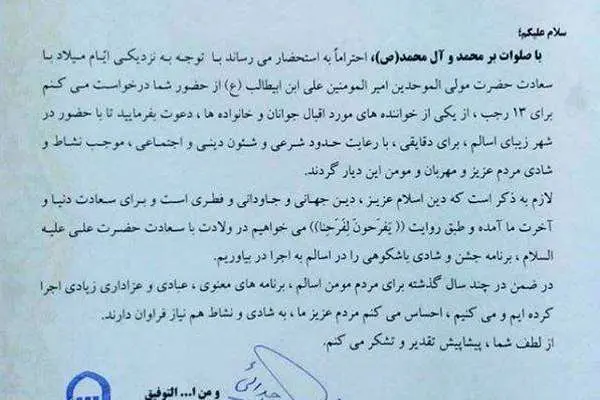 سلام علیکم؛
با صلوات بر محمد و آل محمد(ص)، احتراماً به استحضار می رساند با توجه به نزدیکی ایّام میلاد با
سعادت حضرت مولی الموحدین امیر المومنین علی ابن ابیطالب (ع) از حضور شما درخواست می کنم
برای ۱۳ رجب ، از یکی از خواننده های مورد اقبال جوانان و خانواده ها ، دعوت بفرمایید تا با حضور در
شهر زیبای اسالم ، برای دقایقی ، با رعایت حدود شرعی و شئون دینی و اجتماعی ، موجب نشاط و
شادی مردم عزیز و مهربان و مومن این دیار گردند.
لازم به ذکر است که دین اسلام عزیز ، دیـن جهانی و جـاودانی و فطری است و بـرای سعادت دنیـا و
آخرت ما آمده و طبق روایت (( یَفرَحونَ لِفَرَحِنا)) می خواهیم در ولادت با سعادت حضرت علـی علیـه
السلام ، برنامه جشن و شادی باشکوهی را در اسالم به اجرا در بیاوریم.
در ضمن در چند سال گذشته برای مردم مومن اسالم ، برنامه های معنوی ، عبادی و عزاداری زیادی اجرا
کرده ایم و می کنیم ، احساس می کنم مردم عزیز ما ، به شادی و نشاط هم نیاز فراوان دارند.
از لطف شما ، پیشاپیش تقدیر و تشکر می کنم.
و من ا... التوفیق